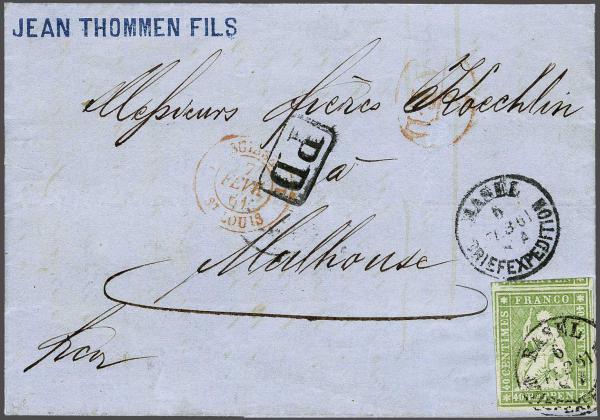 JEAN THOMMEN FILS
Messieurs frères Koechlin
à
Mulhouse
PD
SUISSE
7
FEVR
61
ST LOUIS
BASEL
6
FEB 61
BRIEFEXPEDITION
FRANCO
40 CENTIMES
40 RAPPEN
BASEL
6